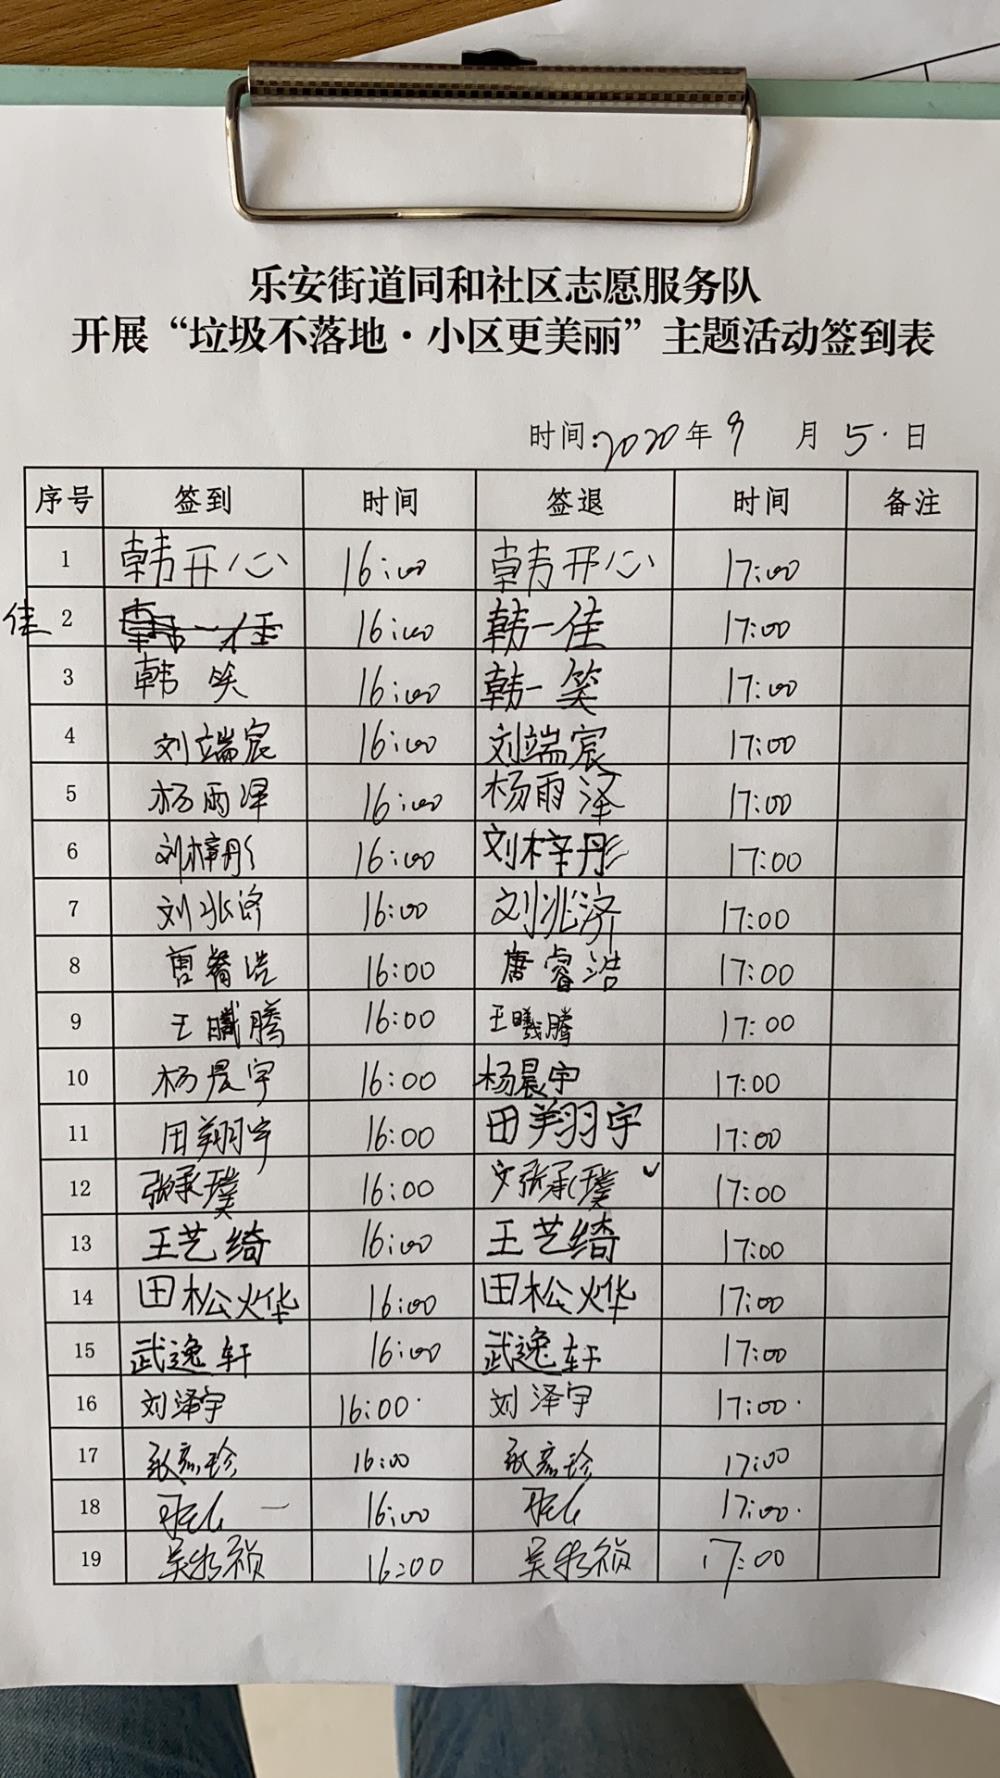 乐安街道同和社区志愿服务队
开展“垃圾不落地·小区更美丽”主题活动签到表
时间:2020年9月5.日
序号 签到 时间 签退 时间 备注
1 韩开心 16:00 韩开心 17:00
佳 2 韩一佳 16:00 韩一佳 17:00
3 韩笑 16:00 韩一笑 17:00
4 刘端宸 16:00 刘端宸 17:00
5 杨雨泽 16:00 杨雨泽 17:00
6 刘梓彤 16:00 刘梓彤 17:00
7 刘兆济 16:00 刘兆济 17:00
8 唐睿浩 16:00 唐睿浩 17:00
9 王曦腾 16:00 王曦腾 17:00
10 杨晨宇 16:00 杨晨宇 17:00
11 田翔宇 16:00 田翔宇 17:00
12 张承璞 16:00 张承璞 17:00
13 王艺绮 16:00 王艺绮 17:00
14 田松烨 16:00 田松烨 17:00
15 武逸轩 16:00 武逸轩 17:00
16 刘泽宇 16:00 刘泽宇 17:00
17 16:00 17:00
18 16:00 17:00
19 16:00 17:00